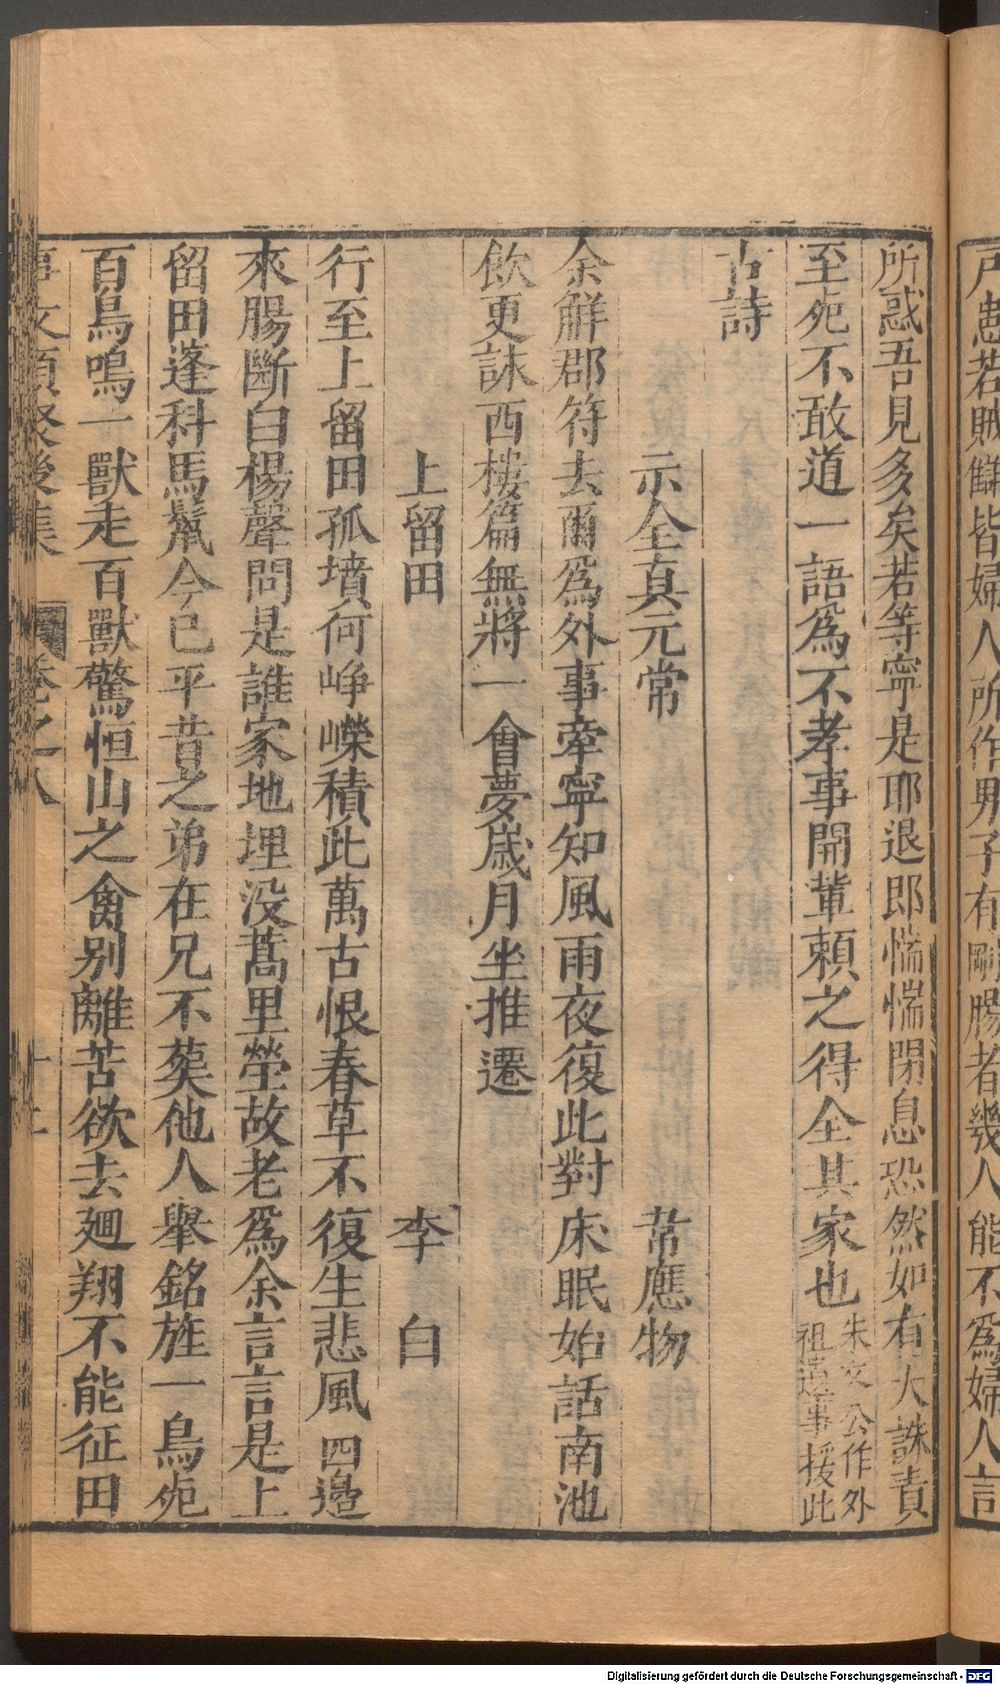 戸患若賊讎皆婦人所作男子有剛腸者幾人能不爲婦人言
所惑吾見多矣若等寧是耶退即惴惴閉息恐然如有大誅責
至死不敢道一語爲不孝事開輩賴之得全其家也朱文公作外
祖遺事援此
古詩
示全真元常　韋應物
余觧郡符去爾爲外事牽寧知風雨夜復此對床眠始話南池
飲更詠西樓篇無將一會夢歲月坐推遷
上留田　李白
行至上留田孤墳何崢嶸積此萬古恨春草不復生悲風四邉
來腸斷白楊聲問是誰家地埋没蒿里塋故老爲余言言是上
留田蓬科馬鬛今已平昔之弟在兄不葬他人舉銘旌一鳥死
百鳥鳴一獸走百獸驚恒山之禽别離苦欲去廻翔不能征田
事文類聚後集　卷之八
Digitalisierung gefördert durch die Deutsche Forschungsgemeinschaft - DFG